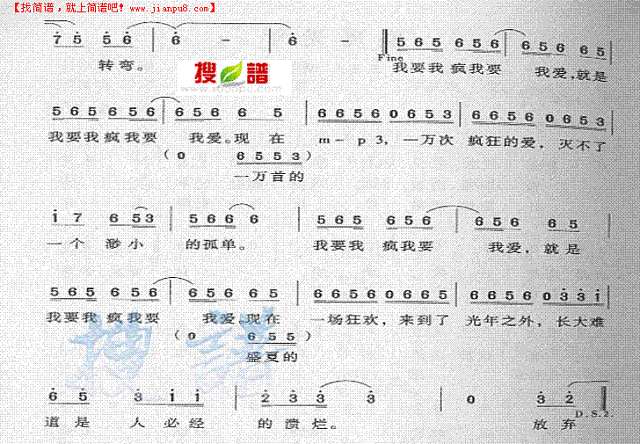 【找简谱，就上简谱吧! www.jianpu8.com】
7 5 5 6 | 6 - | 6 - ‖ 5 6 5 6 5 6 | 5 6 6 6 5
Fine
转弯。 搜谱 我要我疯我要 我爱,就是
5 6 5 6 5 6 | 5 6 6 6 5 | 6 6 5 6 0 6 5 3 | 6 6 5 6 0 6 5 3
我要我疯我要 我爱。现 在 m-p3,一万次 疯狂的爱,灭不了
(0 6 5 5 3)
一万首的
i 7 6 5 3 | 5 6 6 6 | 5 6 5 6 5 6 | 5 6 6 6 5
一个 渺小 的孤单。 我要我 疯我要 我爱,就是
5 6 5 6 5 6 | 5 6 6 6 5 | 6 6 5 6 0 6 6 5 | 6 6 5 6 0 3 3 i
我要我 疯我要 我爱,现在 一场狂欢,来到了 光年之外,长大难
(0 6 5 5)
盛夏的
6 5 3 i i | 2 3 3 3 | 3 - | 0 3 2
D.S.2.
道是 人必经 的溃烂。 放弃